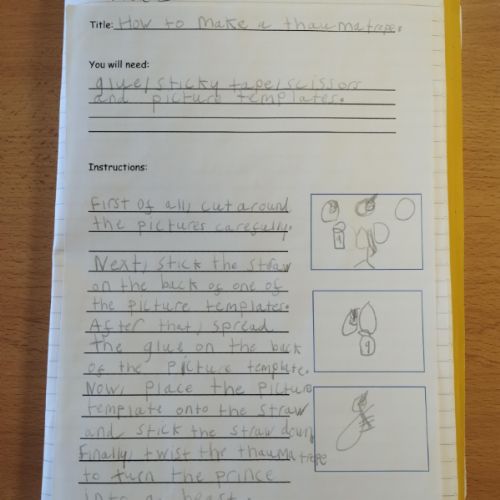 Title: How to make a thaumatrope.
You will need:
glue/sticky tape/scissors
and picture templates.
Instructions:
First of all, cut around
the pictures carefully.
Next, stick the straw
on the back of one of
the picture templates.
After that, spread
the glue on the back
of the picture template.
Now, place the picture
template onto the straw
and stick the straw down
Finally, twist the thaumatrope
to turn the prince
into a beast.